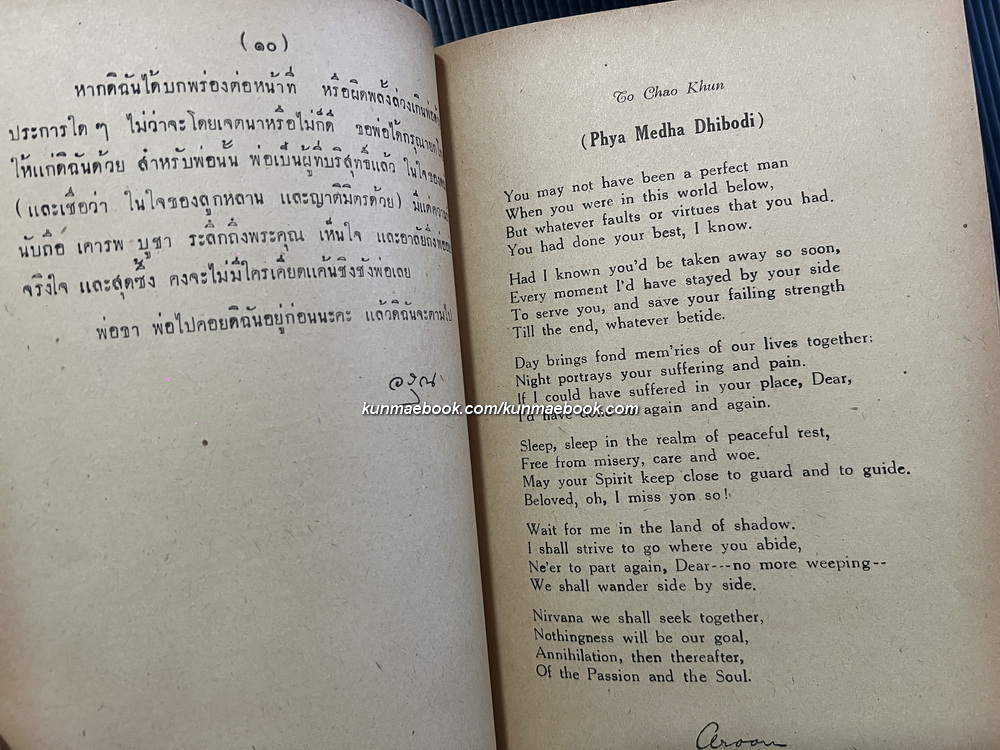 (๑๐)
หากดิฉันได้บกพร่องต่อหน้าที่ หรือผิดพลั้งล่วงเกินพ่อด้วย
ประการใด ๆ ไม่ว่าจะโดยเจตนาหรือไม่ก็ดี ขอพ่อได้กรุณา
ให้แก่ดิฉันด้วย สำหรับพ่อนั้น พ่อเป็นผู้ที่บริสุทธิ์แล้ว ในใจของ
(และเชื่อว่า ในใจของลูกหลาน และญาติมิตรด้วย) มีแต่ความ
นับถือ เคารพ บูชา ระลึกถึงพระคุณ เห็นใจ และอาลัยถึงพ่อ
จริงใจ และสุดซึ้ง คงจะไม่มีใครเคียดแค้นชิงชังพ่อเลย
พ่อขา พ่อไปคอยดิฉันอยู่ก่อนนะคะ แล้วดิฉันจะตามไป
อรุณ
To Chao Khun
(Phya Medha Dhibodi)
You may not have been a perfect man
When you were in this world below,
But whatever faults or virtues that you had.
You had done your best, I know.
Had I known you'd be taken away so soon,
Every moment I'd have stayed by your side
To serve you, and save your failing strength
Till the end, whatever betide.
Day brings fond mem'ries of our lives together;
Night portrays your suffering and pain.
If I could have suffered in your place, Dear,
I'd have again and again.
Sleep, sleep in the realm of peaceful rest,
Free from misery, care and woe.
May your Spirit keep close to guard and to guide.
Beloved, oh, I miss yon so!
Wait for me in the land of shadow.
I shall strive to go where you abide,
Ne'er to part again, Dear---no more weeping--
We shall wander side by side.
Nirvana we shall seek together,
Nothingness will be our goal,
Annihilation, then thereafter,
Of the Passion and the Soul.
Aroon
kunmaebook.com/kunmaebook.com